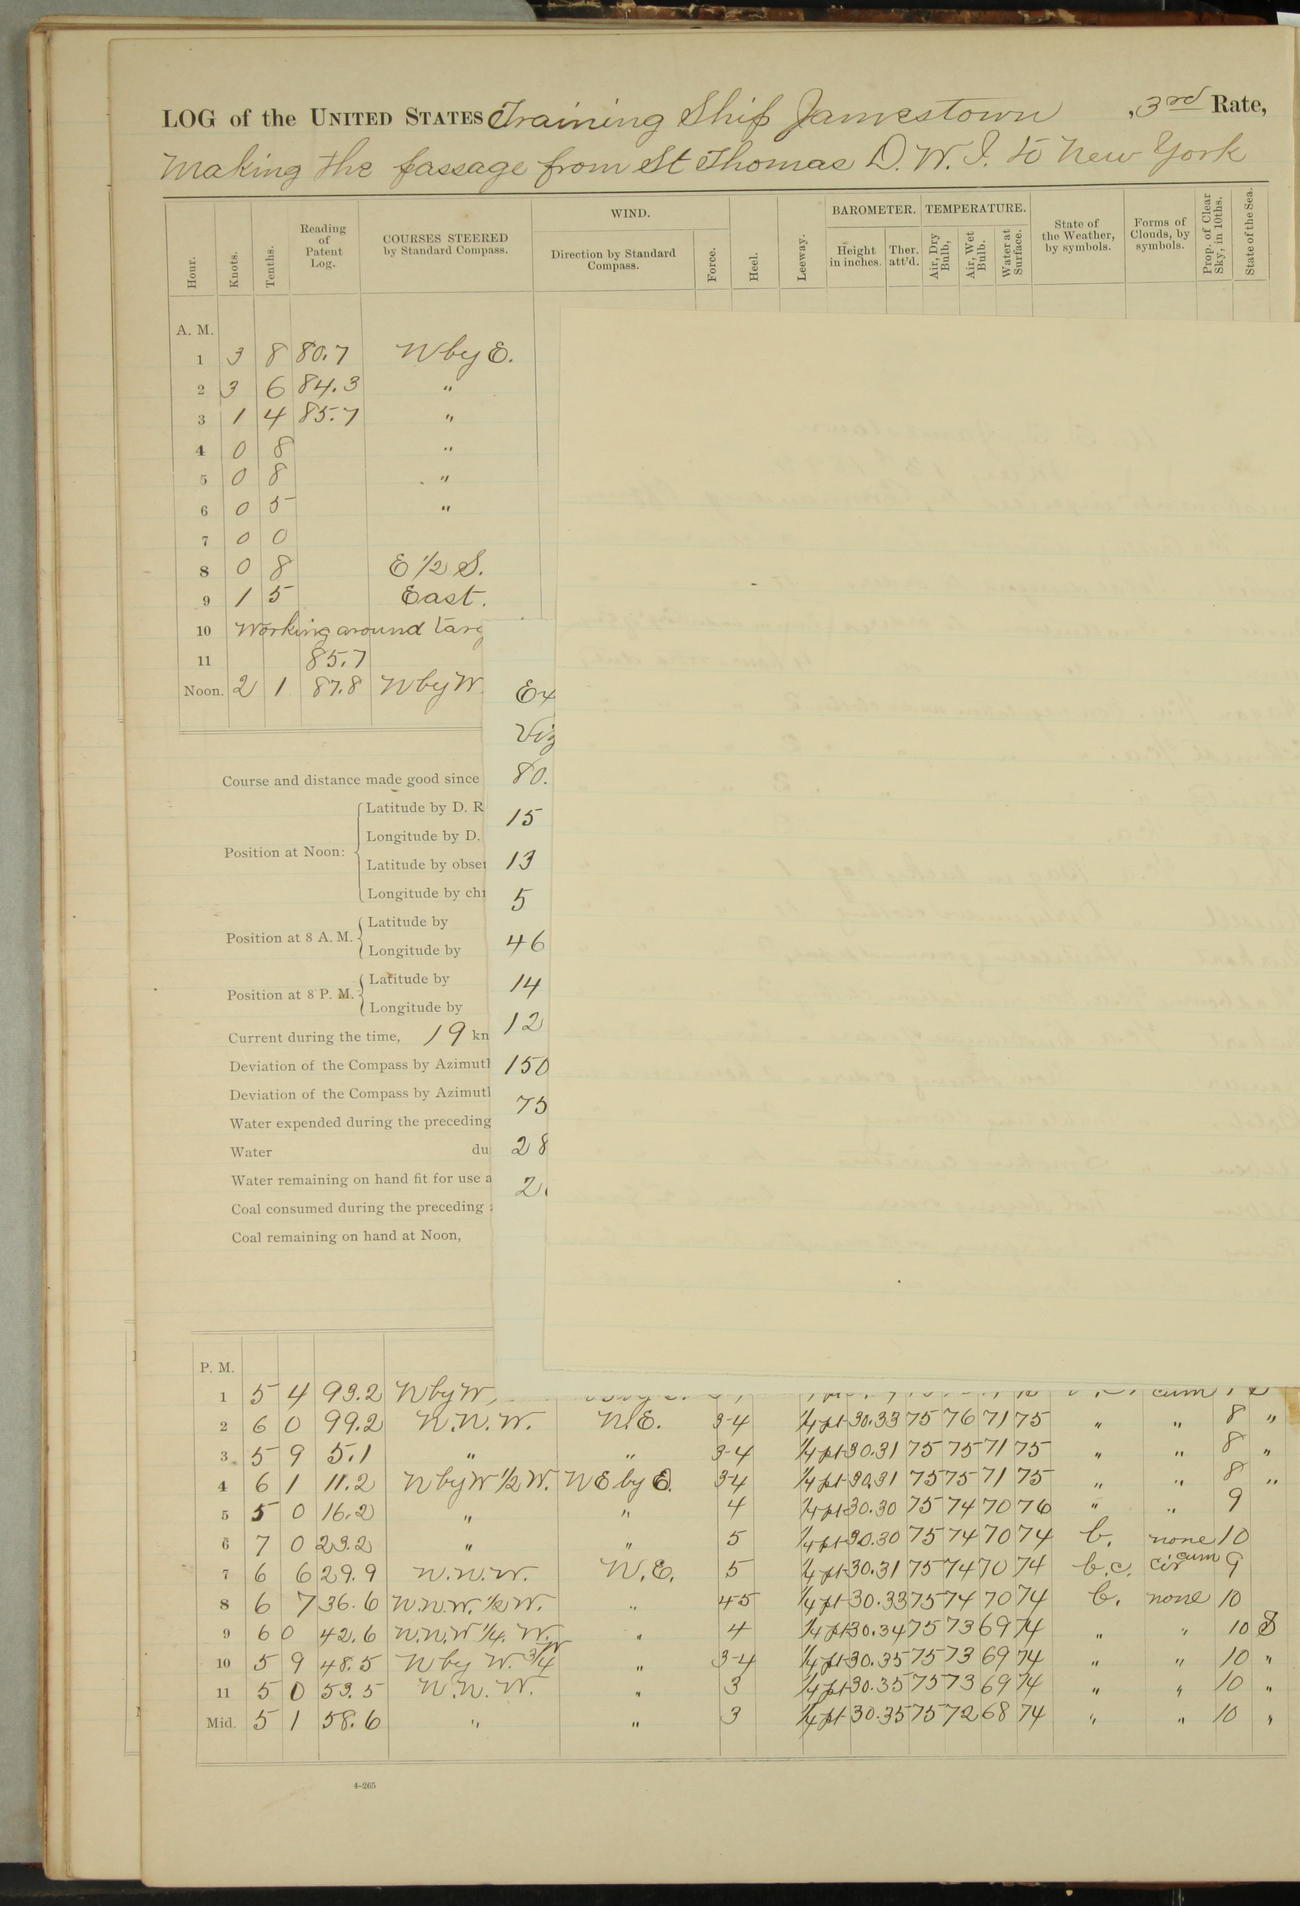 LOG of the UNITED STATES Training Ship Jamestown, 3rd Rate,
Making the passage from St Thomas D. W. I. to New York
Hour. Knots. Tenths. Reading of Patent Log. COURSES STEERED by Standard Compass. WIND. Direction by Standard Compass. Force. Heel. Leeway. BAROMETER. Height in inches. Ther. att'd. TEMPERATURE. Air, Dry Bulb, Air, Wet Bulb. Water at Surface. State of the Weather, by symbols. Forms of Clouds, by symbols. Prop. of Clear Sky, in 10ths. State of the Sea.
A. M.
1 3 8 80.7 N by E.
2 3 6 84.3 "
3 1 4 85.7 "
4 0 8 "
5 0 8 "
6 0 5 "
7 0 0
8 0 8 E 1/2 S.
9 1 5 East.
10 Working around targ
11 85.7
Noon. 2 1 87.8 N by W.
Ex
Viz
80.
15
13
5
46
14
12
150
75
28
2
Course and distance made good since
Position at Noon:
Latitude by D. R
Longitude by D.
Latitude by obse
Longitude by ch
Position at 8 A. M.
Latitude by
Longitude by
Position at 8 P. M.
Latitude by
Longitude by
Current during the time, 19 kn
Deviation of the Compass by Azimut
Deviation of the Compass by Azimut
Water expended during the preceding
Water du
Water remaining on hand fit for use a
Coal consumed during the preceding
Coal remaining on hand at Noon,
P. M.
1 5 4 93.2 N by W.
2 6 0 99.2 N.N.W. N.E. 3-4 1/4 pt 30.33 75 76 71 75 " " 8 "
3 5 9 5.1 " " 3-4 1/4 pt 30.31 75 75 71 75 " " 8 "
4 6 1 11.2 N by W 1/2 W. NE by E. 3-4 1/4 pt 30.31 75 75 71 75 " " 8 "
5 5 0 16.2 " " 4 1/4 pt 30.30 75 74 70 76 " " 9
6 7 0 23.2 " " 5 1/4 pt 30.30 75 74 70 74 b. none 10
7 6 6 29.9 N.N.W. N.E. 5 1/4 pt 30.31 75 74 70 74 b.c. cir cum 9
8 6 7 36.6 N.N.W. 1/2 W. " 4-5 1/4 pt 30.33 75 74 70 74 b. none 10
9 6 0 42.6 N.N.W 1/4. W. " 4 1/4 pt 30.34 75 73 69 74 " " 10 S
10 5 9 48.5 N by W. 3/4 W " 3-4 1/4 pt 30.35 75 73 69 74 " " 10 "
11 5 0 53.5 N.N.W. " 3 1/4 pt 30.35 75 73 69 74 " " 10 "
Mid. 5 1 58.6 " " 3 1/4 pt 30.35 75 72 68 74 " " 10 "
4-265